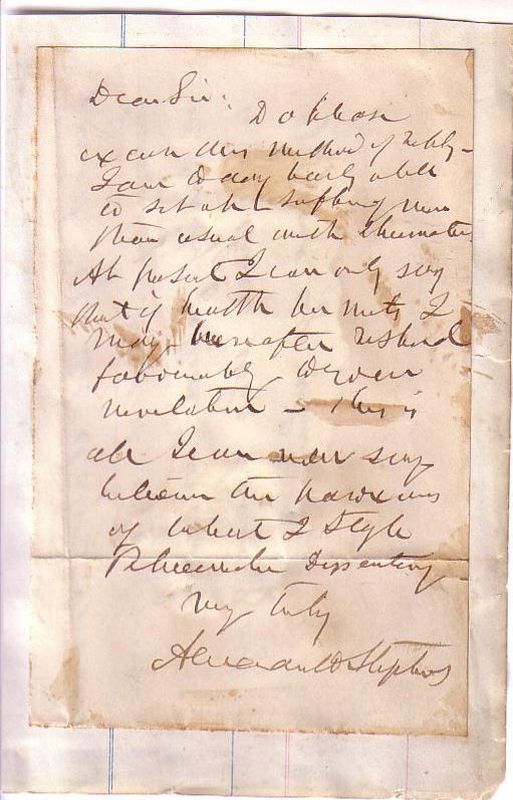 Dear Sir: Do please
excuse this method of reply –
I am to day barely able
to sit up suffering more
than usual with Rheumatism
At present I can only say
that if health permits I
may hereafter respond
favourably to your
invitation – This is
all I can now say
between the paroxisms
of what I style
Rheumatic
very truly
Alexander H Stephens